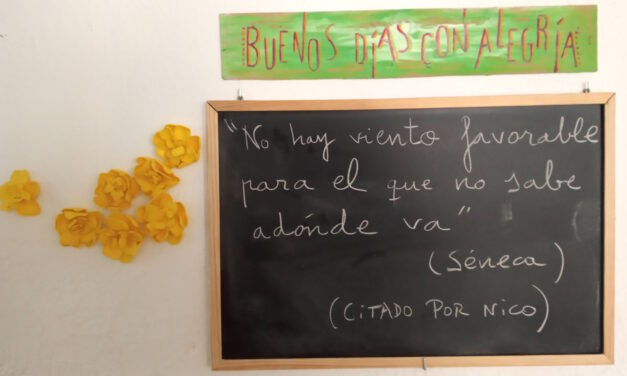 ¡¡BUENOS DÍAS CON ALEGRÍA!!
"No hay viento favorable
para el que no sabe
adónde va"
(Séneca)
(CITADO POR NICO)